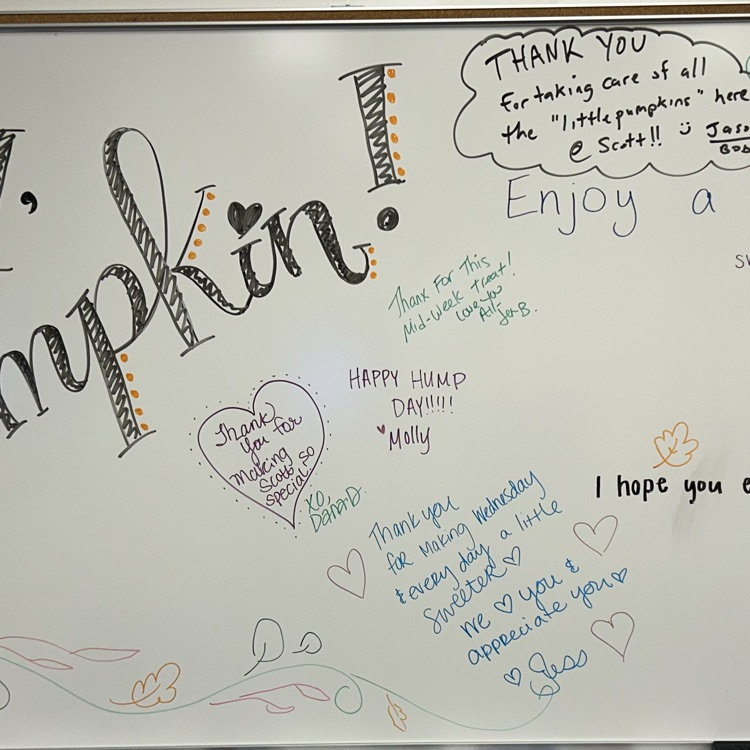 mpkin!
THANK YOU
for taking care of all
the "little pumpkins" here
@ Scott!! Jaso
Bob
Enjoy a
Thanx For This
Mid-Week treat!
Love You
All-
Jen B.
HAPPY HUMP
DAY!!!!!
Molly
Thank
You for
making
Scott so
special!
XO,
Dana D.
I hope you e
Thank you
for Making Wednesday
& every day a little
Sweeter ♡
We ♡ you &
appreciate you ♡
♡ Jess